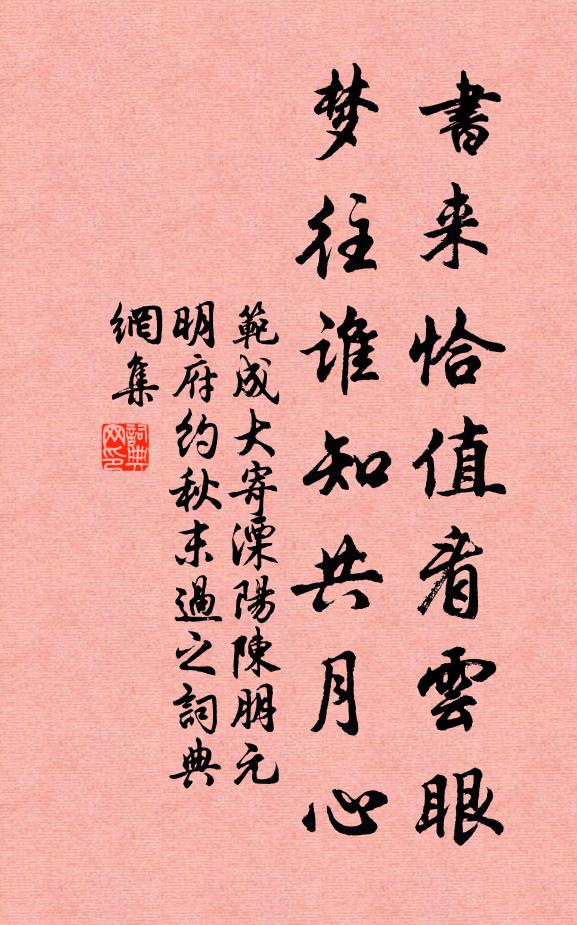 書来恰值看雲眼
梦往谁知共月心
範成大寄溧陽陳朋元
明府約秋末過之詞典
網集
詞典
网印